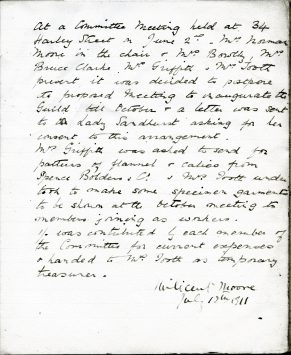 At a Committee Meeting held at 34
Harley Street on June 2nd, Mrs Norman
Moore in the chair & Mrs Bowlby Mrs
Bruce Clarke Mrs Griffith & Mrs Tooth
present it was decided to postpone
the proposed Meeting to inaugurate the
Guild till October & a letter was sent
to the Lady Sandhurst asking for her
consent to this arrangement.
Mrs Griffith was asked to send for
patterns of flannel & calico from
& Co. & Mrs Tooth under
took to make some specimen garments
to be shown at the October meeting to
members joining as workers.
1/- was contributed by each member of
the Committee for current expenses
& handed to Mrs Tooth as temporary
treasurer.
Milicent Moore
July 13th 1911